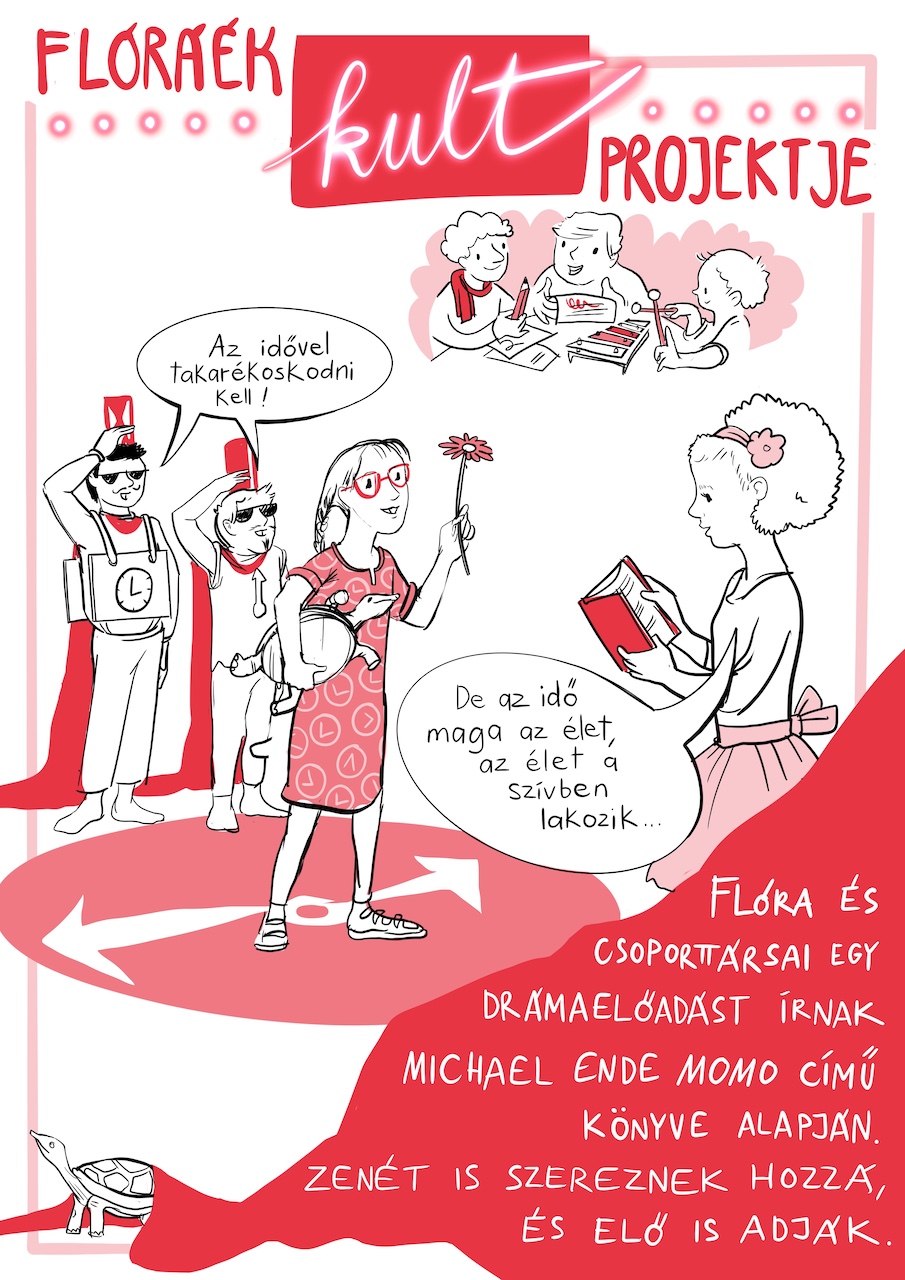 FLÓRÁÉK
kult
PROJEKTJE
Az idővel
takarékoskodni
kell!
De az idő
maga az élet,
az élet a
szívben
lakozik...
FLÓRA ÉS
CSOPORTTÁRSAI EGY
DRÁMAELŐADÁST ÍRNAK
MICHAEL ENDE MOMO CÍMŰ
KÖNYVE ALAPJÁN.
ZENÉT IS SZEREZNEK HOZZÁ,
ÉS ELŐ IS ADJÁK.